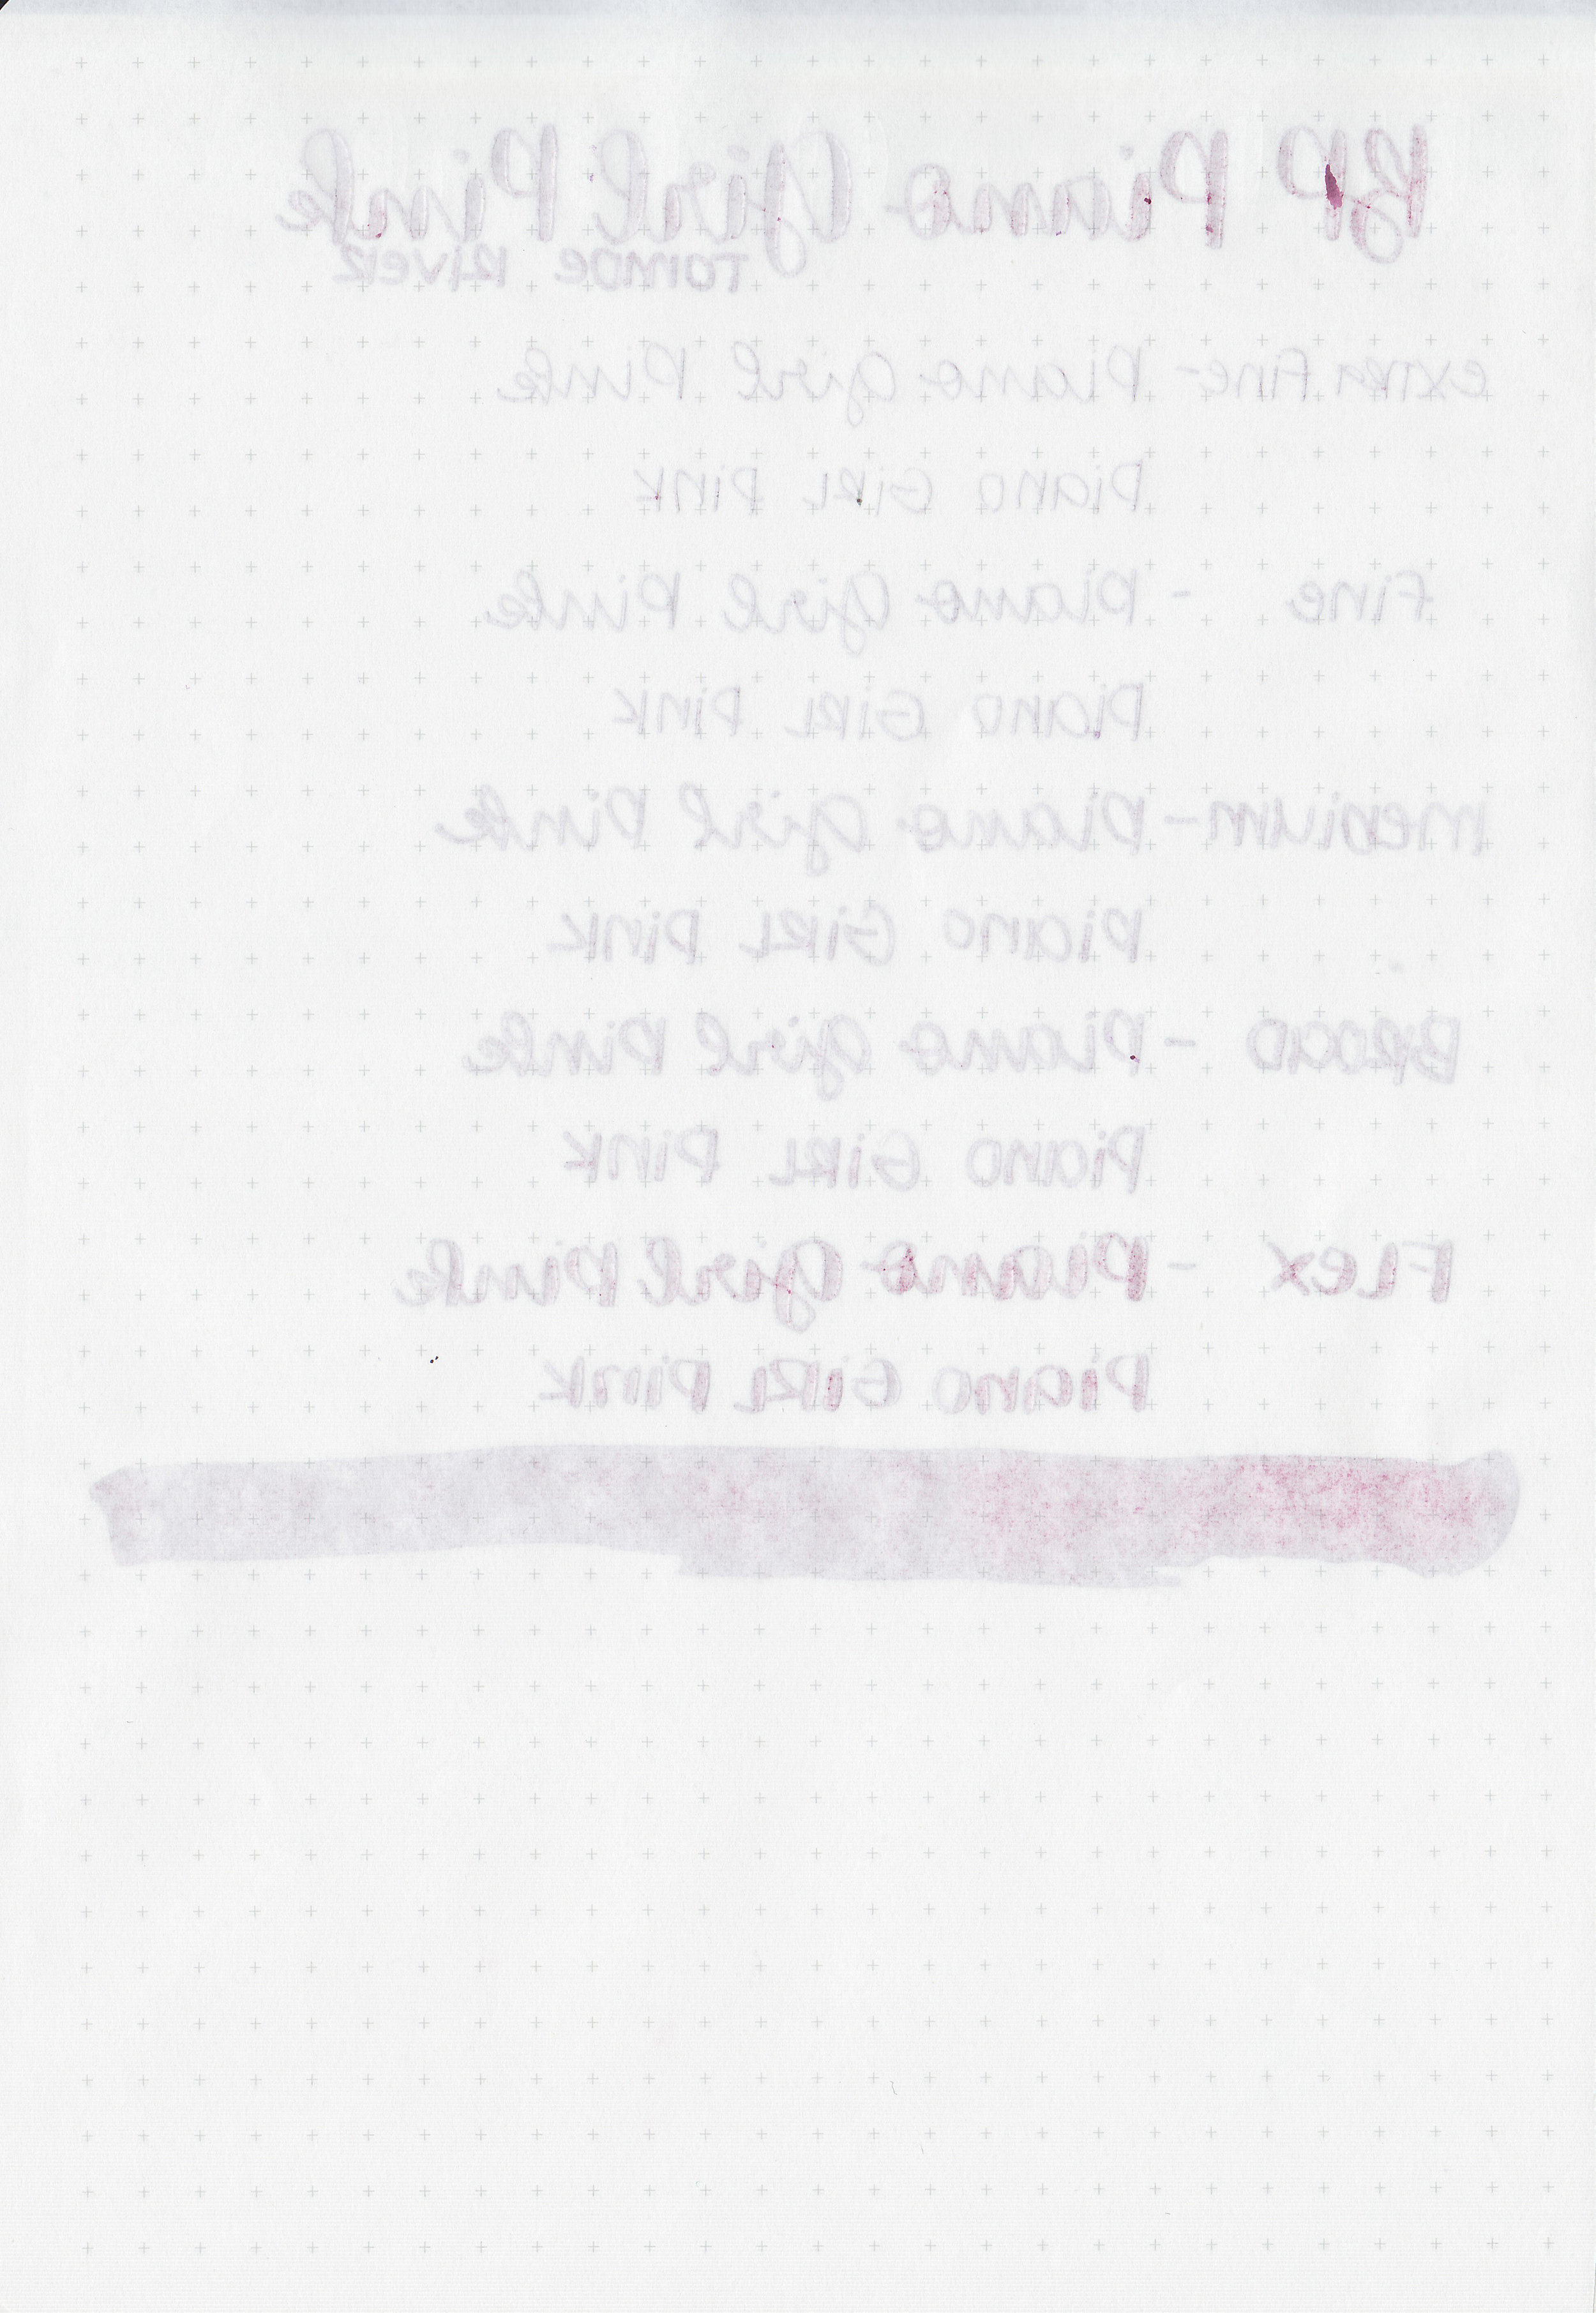 BP Piano Girl Pink
Tomoe River
extra fine - Piano Girl Pink
Piano Girl Pink
Fine - Piano Girl Pink
Piano Girl Pink
Medium - Piano Girl Pink
Piano Girl Pink
Broad - Piano Girl Pink
Piano Girl Pink
Flex - Piano Girl Pink
Piano Girl Pink